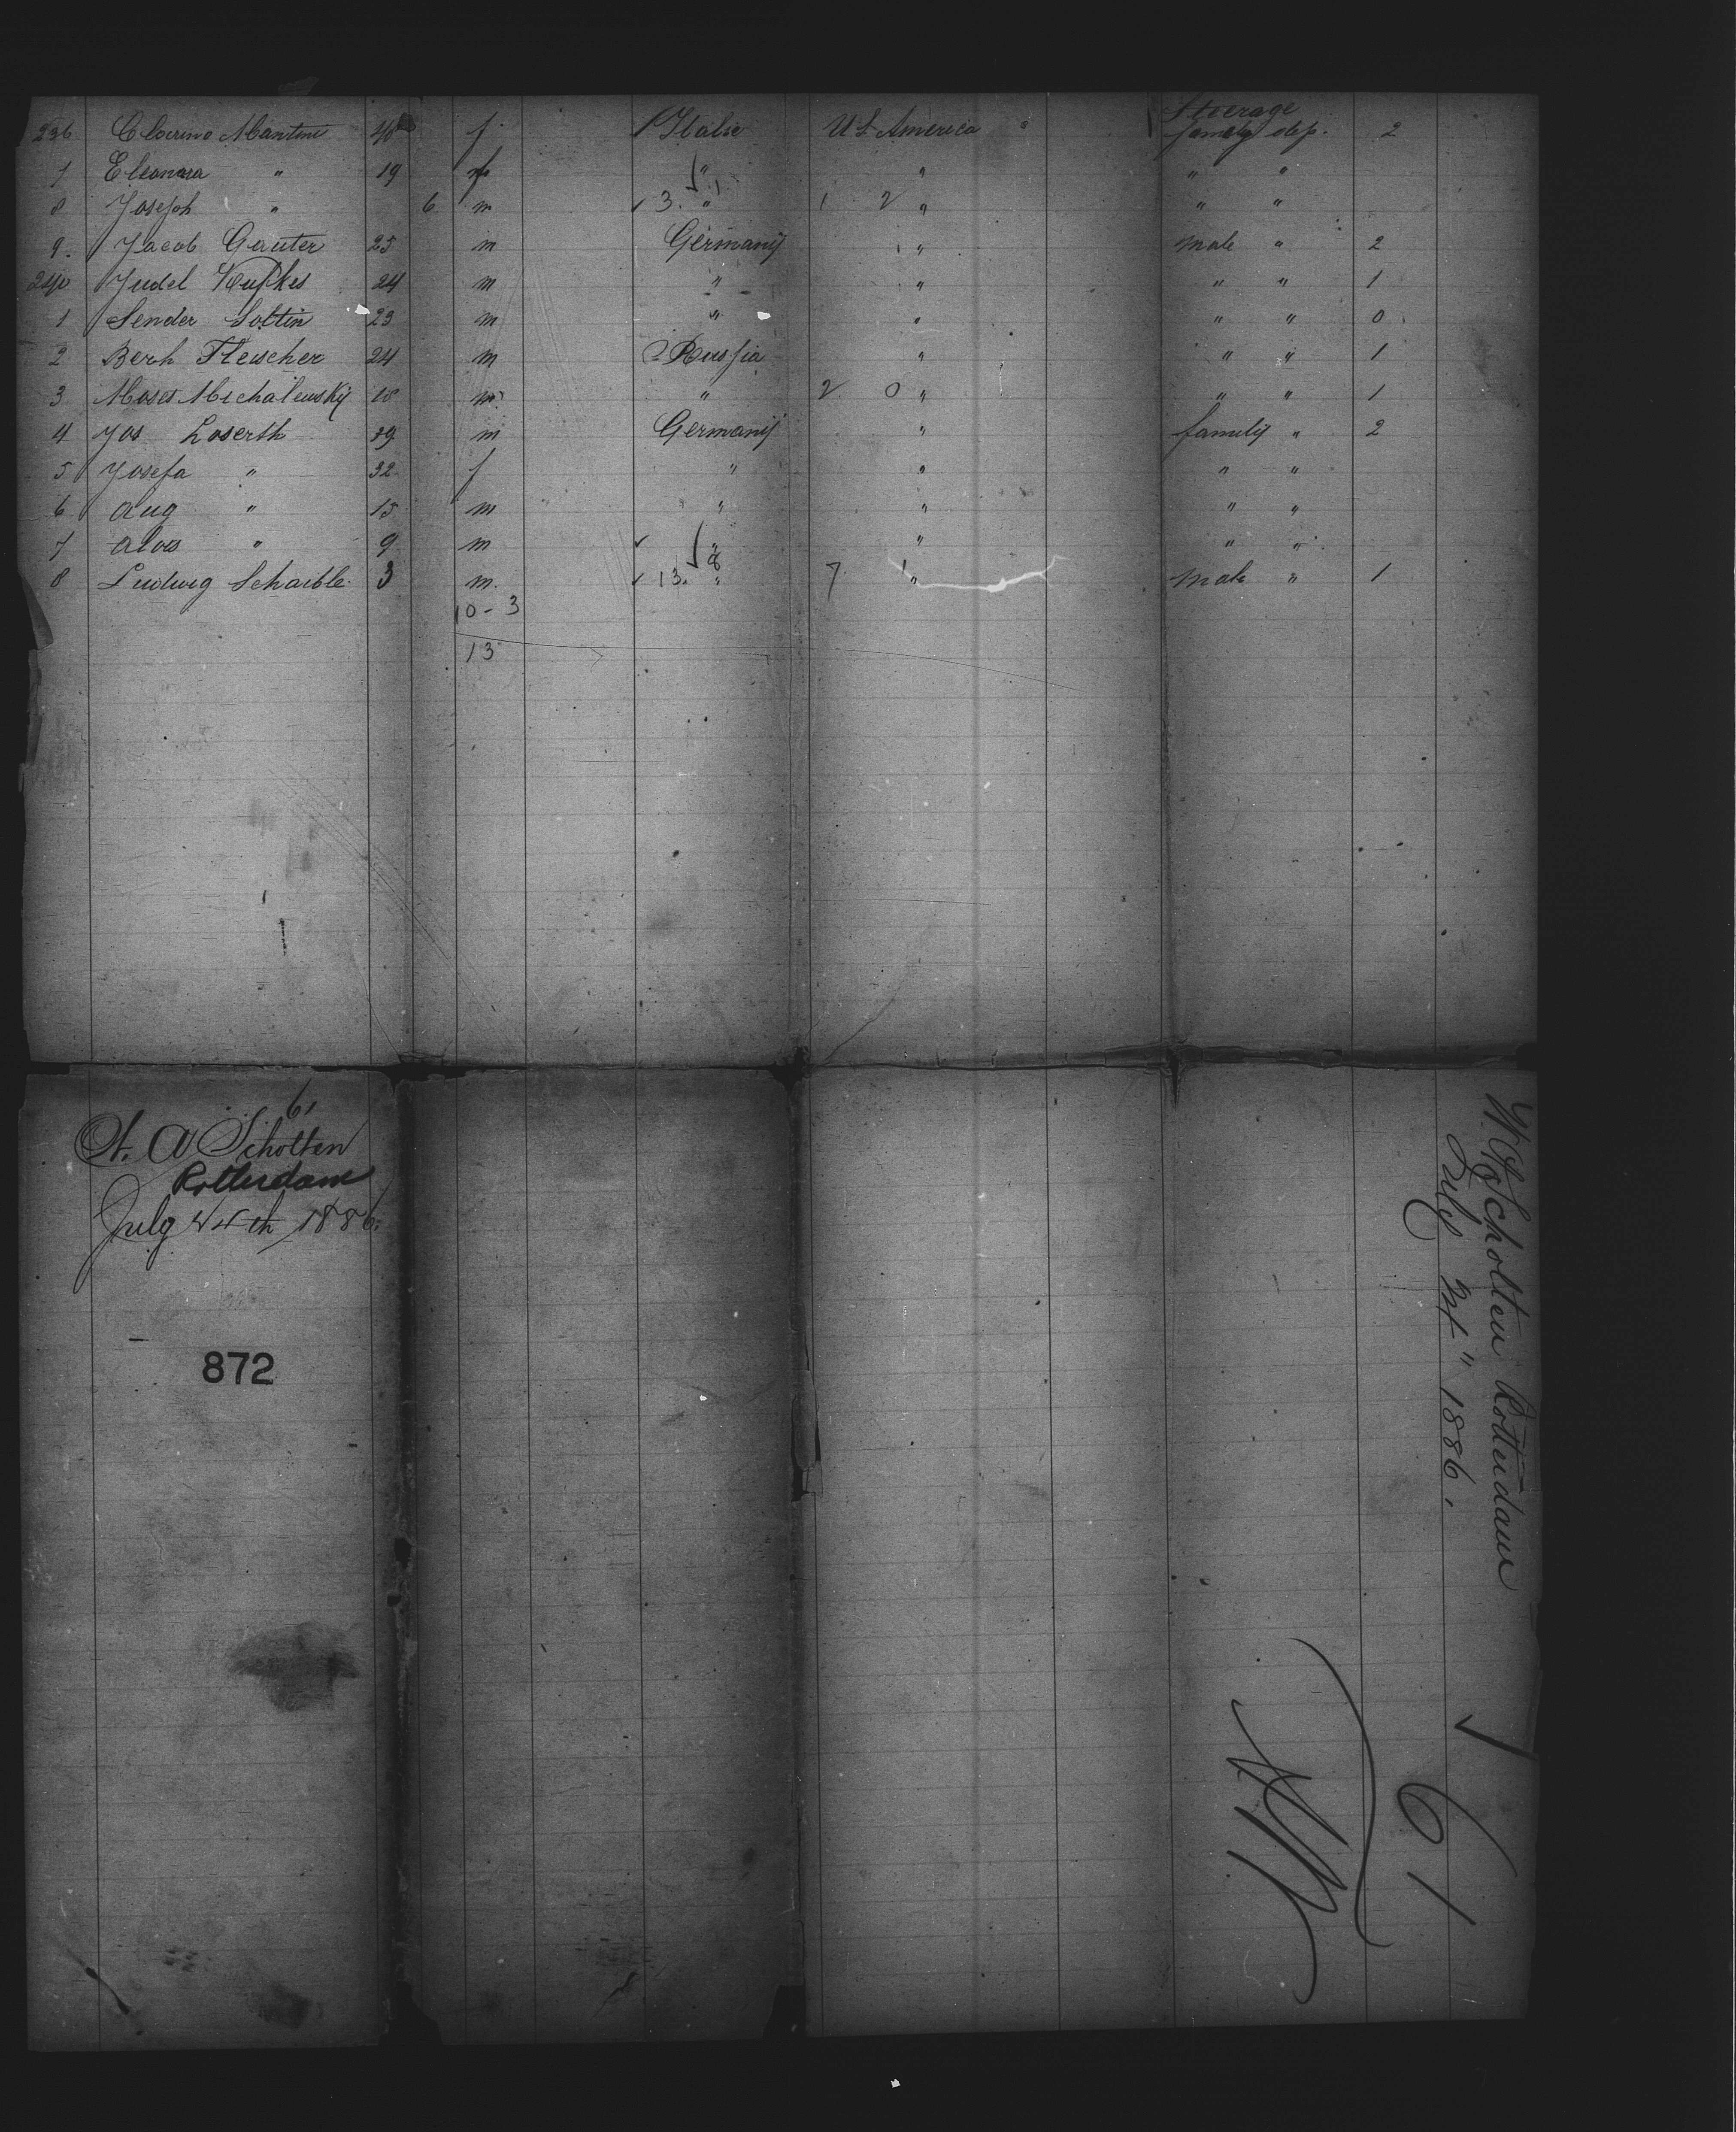 Steerage
236 Clarino Mantini 40 f Italie U S. America family dep. 2
7 Eleonora " 19 f " " " "
8 Joseph " 6 m 3. " 1 2 " " "
9. Jacob Gauter 25 m Germany " male " 2
240 Judel 24 m " " " " 1
1 Sender Soltin 23 m " " " " 0
2 Berh Fleischer 24 m Russia " " " 1
3 Moses Michalewskij 18 m " 2 0 " " " 1
4 Jos Loserth 39 m Germany " family " 2
5 Josefa " 32 f " " " "
6 Aug " 15 m " " " "
7 Alois " 9 m " " " "
8 Ludwig Schaible 3 m. 13. 8 " 7 1 " male " 1
10 - 3
13
61
W. A Scholten
Rotterdam
July 24th 1886.
872
W A Scholten Rotterdam
July 24" 1886.
61